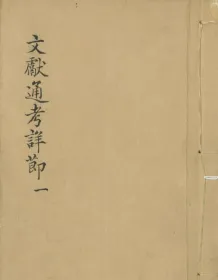 文獻通考詳節一